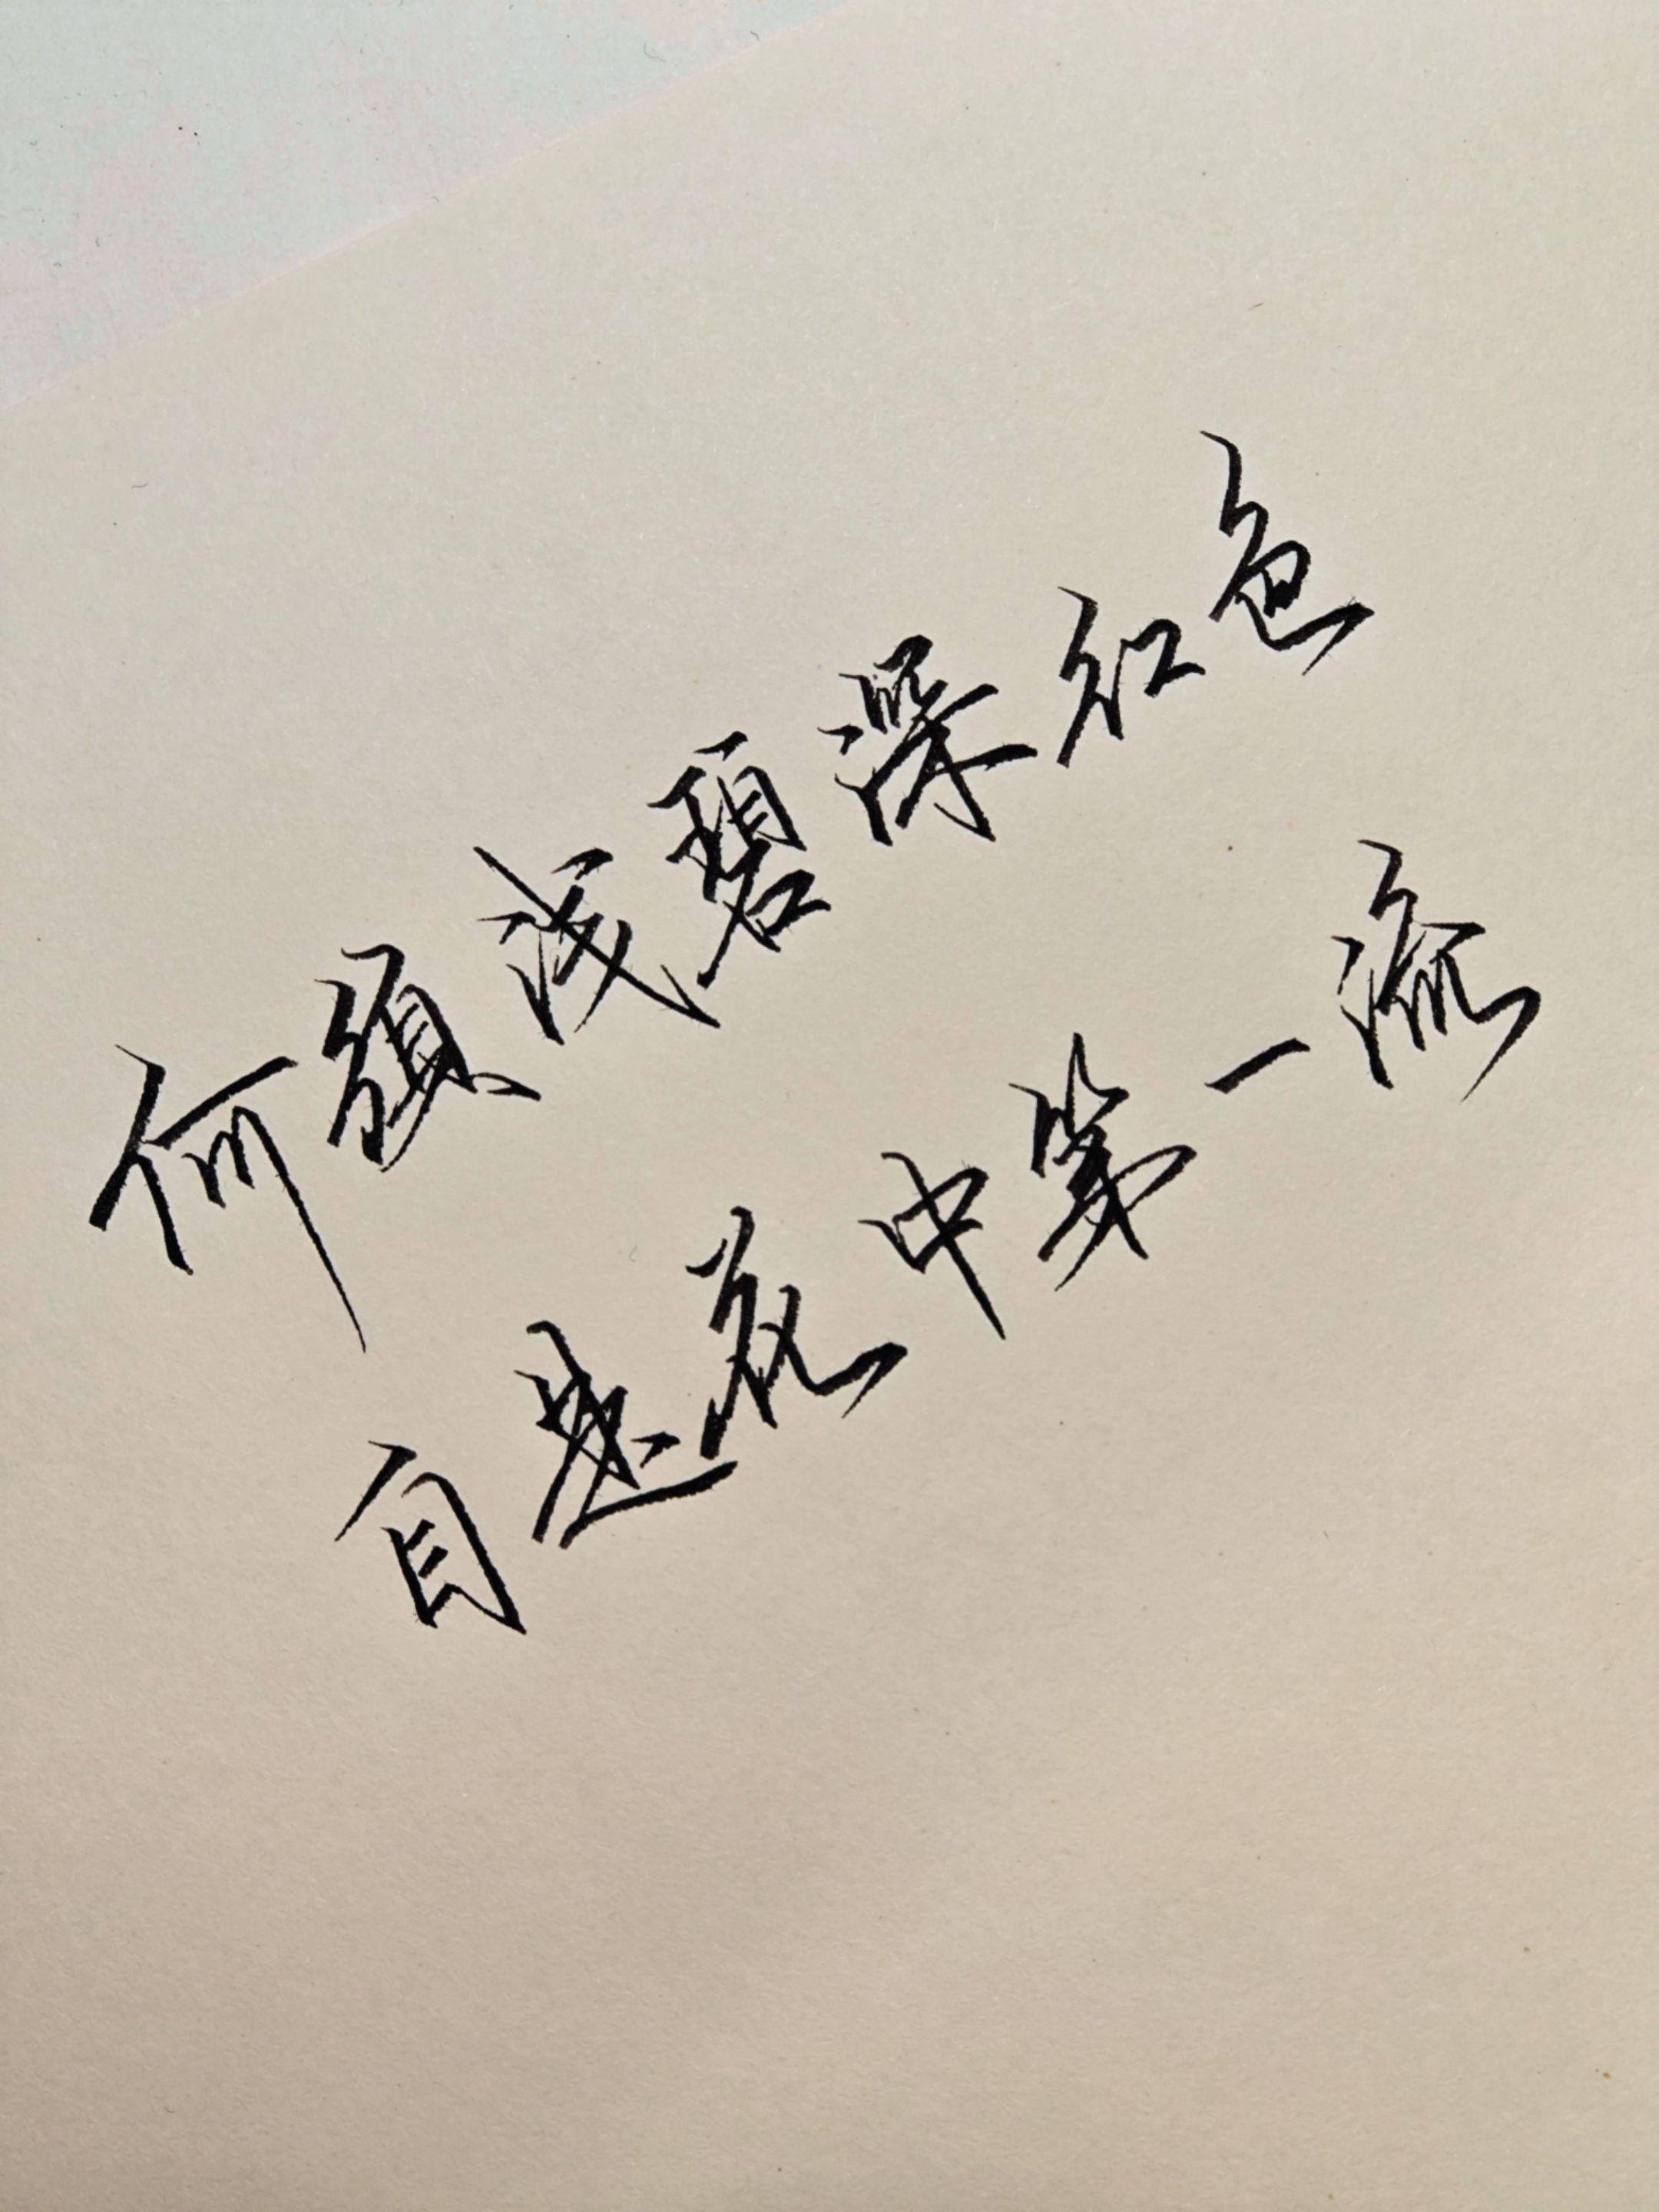 何須浅碧深红色
自是花中第一流